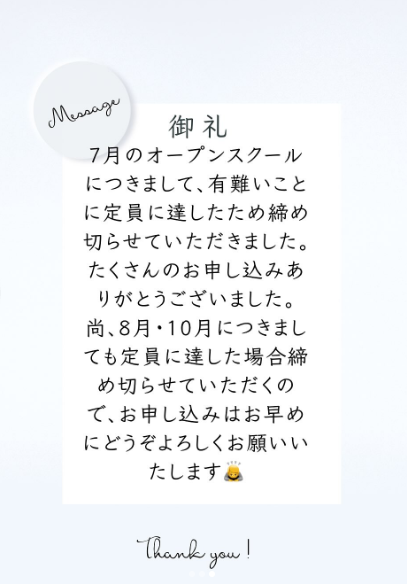 Message
御礼
7月のオープンスクール
につきまして、有難いこと
に定員に達したため締め
切らせていただきました。
たくさんのお申し込みあ
りがとうございました。
尚、8月・10月につきまし
ても定員に達した場合締
め切らせていただくの
で、お申し込みはお早め
にどうぞよろしくお願いい
たします🙇
Thank you !